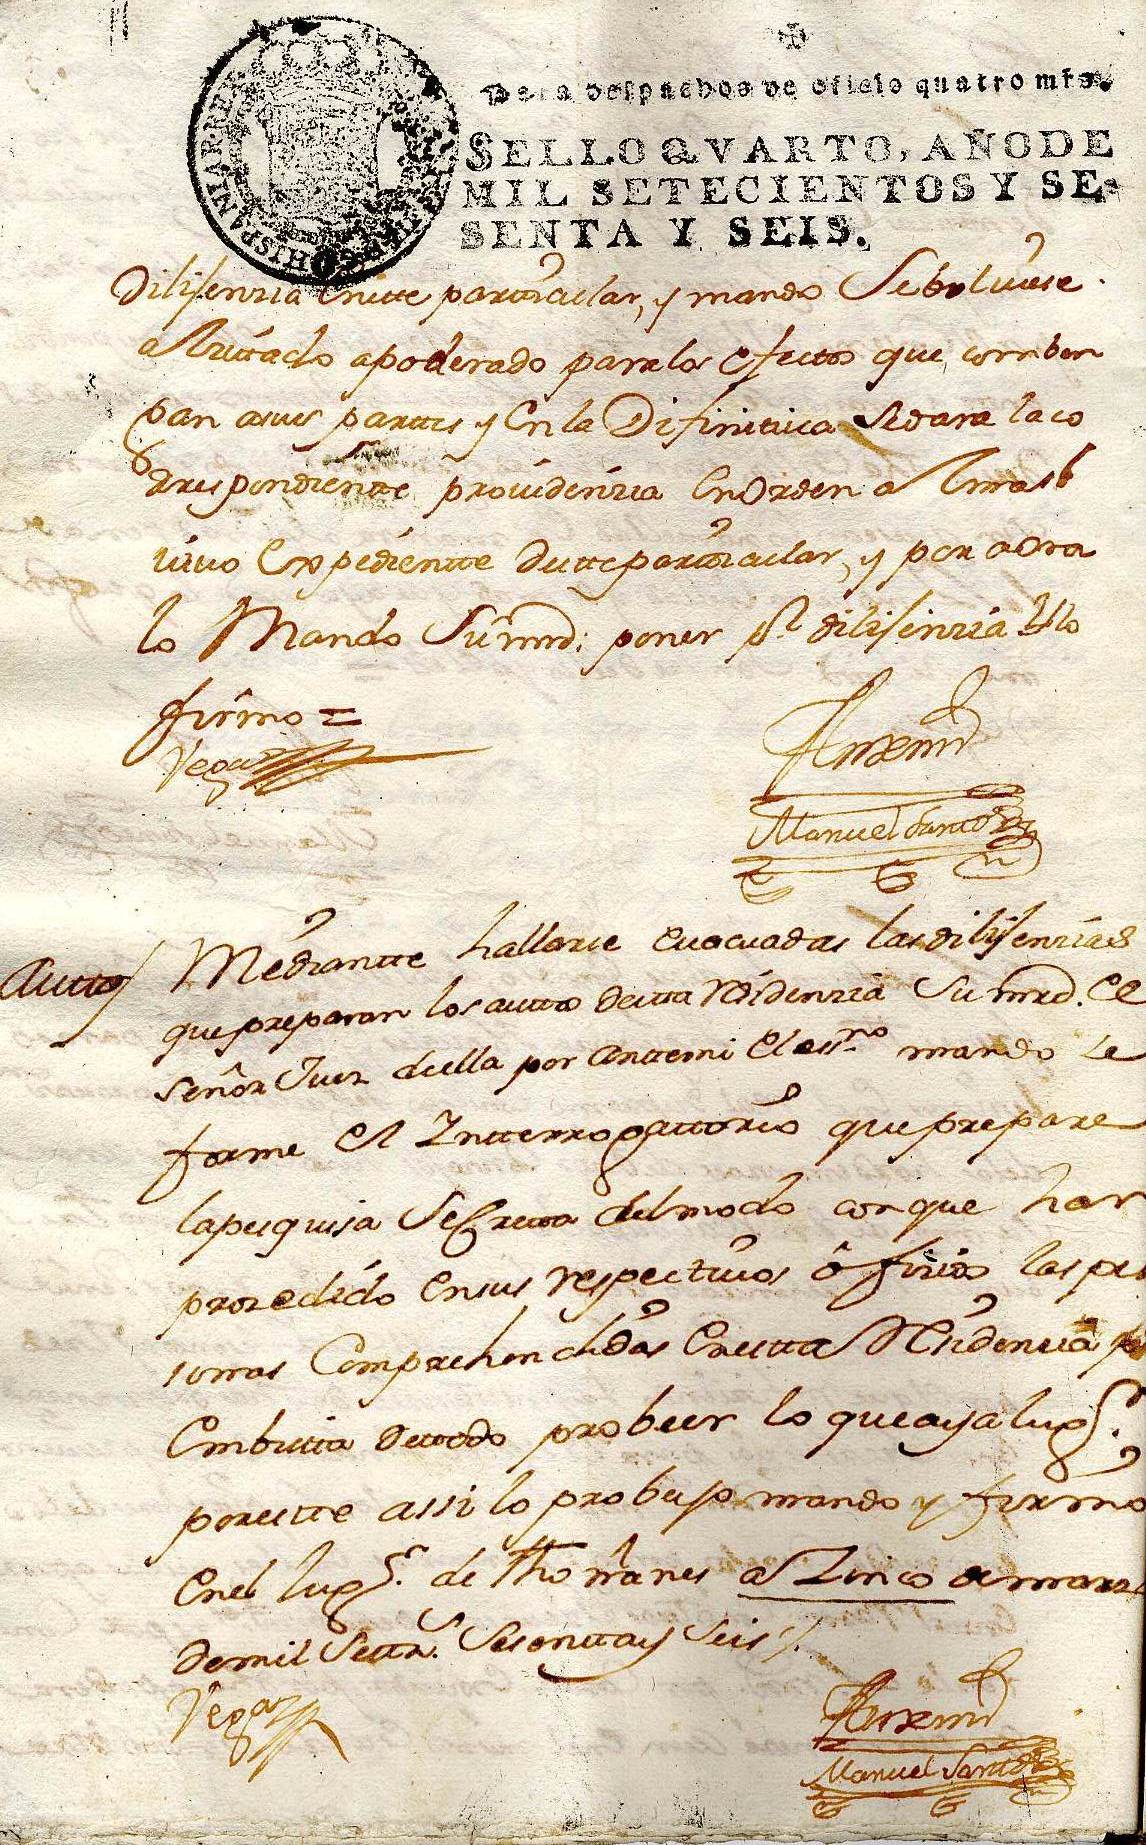 Para despachos de oficio quatro mrs.
SELLO QVARTO, AÑO DE
MIL SETECIENTOS Y SE-
SENTA Y SEIS.
HISPANIAR. REX
Dilijenzia en este particular, y mando se bolviese
al zittado apoderado para los efectos que combn
gan a sus parttes y en la Difinitiva se dara la co
rrespondiente providenzia en orden a
expediente de este particular, y por aora
lo Mando Su mrd: poner pr. dilijenzia y lo
firmo =
Vega
Ante mi
Manuel Santos
Autto
Mediantte hallarse evacuadas las dilijenzias
que preparan los auttos de esta residenzia Su mrd. el
señor Juez de ella por antemi el essno mando se
forme el Intterrogattorio que prepare
la pesquisa secretta del modo con que han
prozedido en sus respectivos ofizios las per
sonas comprehendidas en esta residenzia
en bista de todo probeer lo que aya lugr.
por este assi lo probeyo mando y firmo
en el lugr. de a zinco de marzo
de mil settos. sesentta y seis
Vega
Ante mi
Manuel Santos